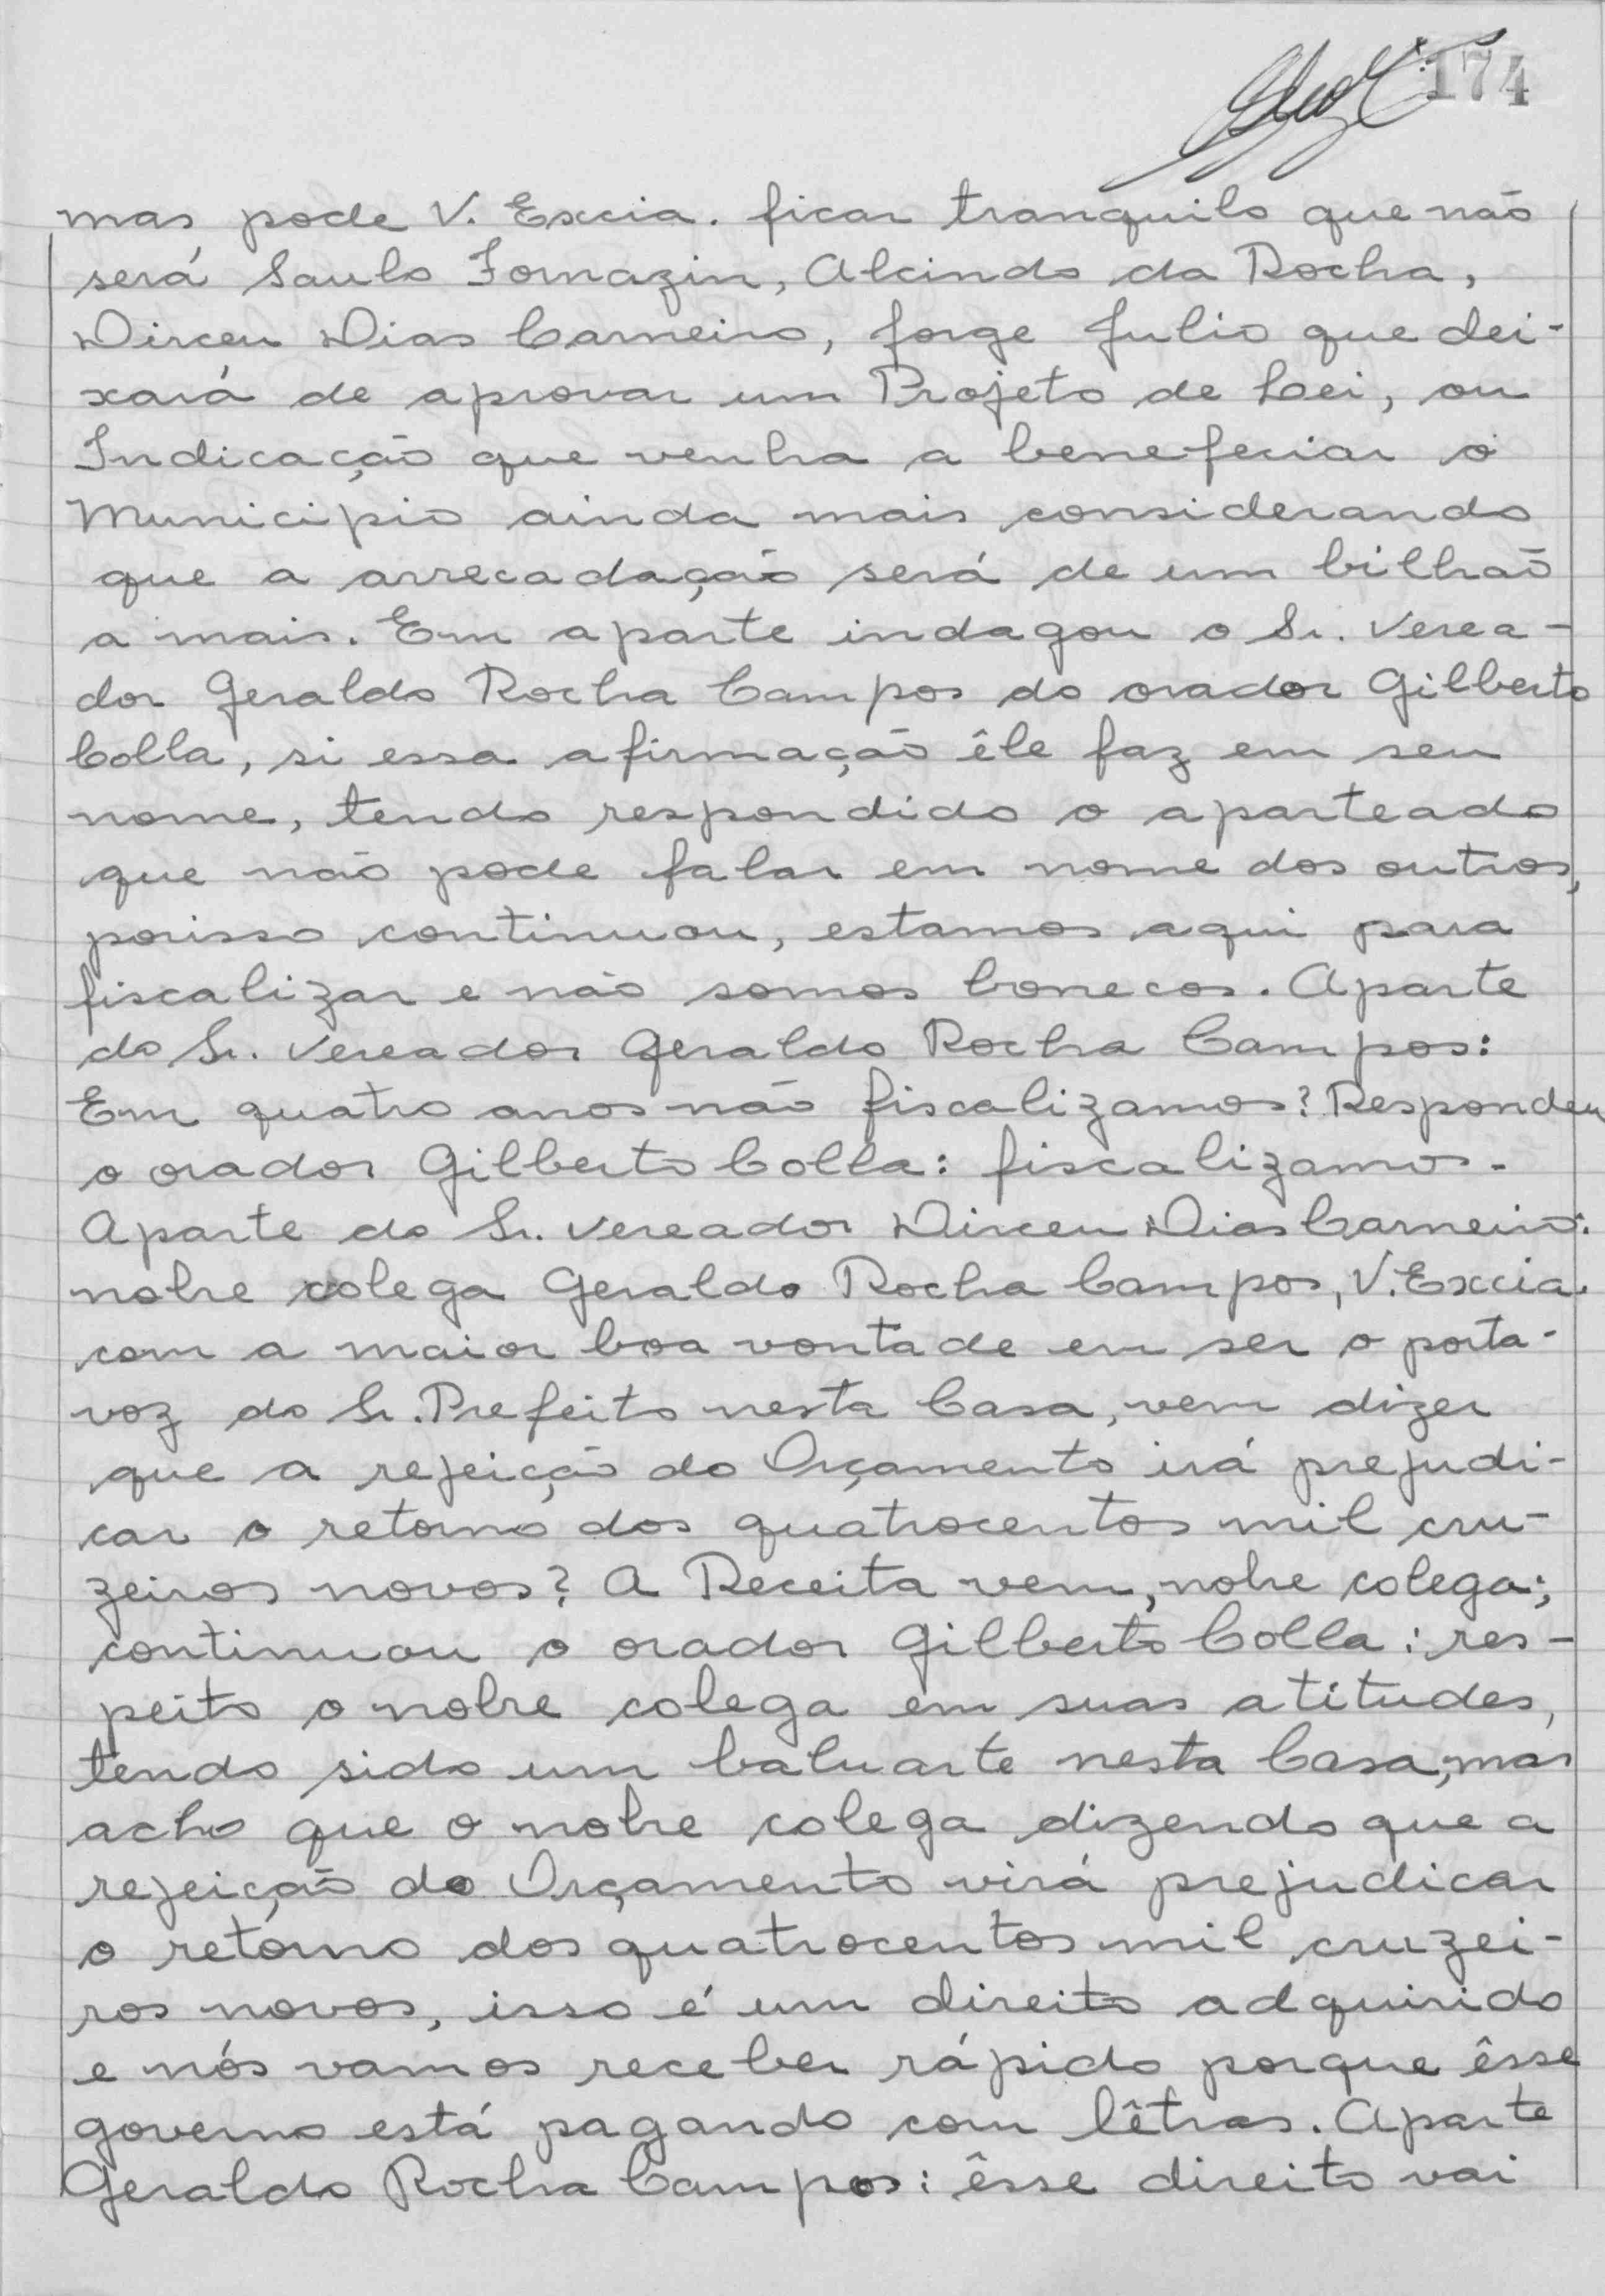 174
mas pode V. Excia. ficar tranquilo que não
será Saulo Fornazin, Alcindo da Rocha,
Dirceu Dias Carneiro, Jorge Julio que dei-
xará de aprovar um Projeto de Lei, ou
Indicação que venha a beneficiar o
Municipio ainda mais considerando
que a arrecadação será de um bilhão
a mais. Em aparte indagou o Sr. Verea-
dor Geraldo Rocha Campos do orador Gilberto
Colla, si essa afirmação êle faz em seu
nome, tendo respondido o aparteado
que não pode falar em nome dos outros,
porisso continuou, estamos aqui para
fiscalizar e não somos bonecos. Aparte
do Sr. Vereador Geraldo Rocha Campos:
Em quatro anos não fiscalizamos? Respondeu
o orador Gilberto Colla: fiscalizamos.
Aparte do Sr. Vereador Dirceu Dias Carneiro:
nobre colega Geraldo Rocha Campos, V. Excia.
com a maior boa vontade em ser o porta-
voz do Sr. Prefeito nesta Casa, vem dizer
que a rejeição do Orçamento irá prejudi-
car o retorno dos quatrocentos mil cru-
zeiros novos? A Receita vem, nobre colega;
continuou o orador Gilberto Colla: res-
peito o nobre colega em suas atitudes,
tendo sido um baluarte nesta Casa, mas
acho que o nobre colega dizendo que a
rejeição do Orçamento virá prejudicar
o retôrno dos quatrocentos mil cruzei-
ros novos, isso é um direito adquirido
e nós vamos receber rápido porque êsse
governo está pagando com lêtras. Aparte
Geraldo Rocha Campos: êsse direito vai